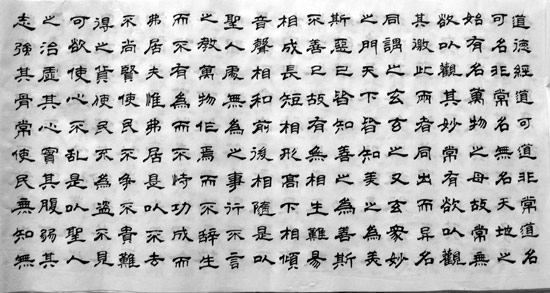 道德經道可道非常道名
可名非常名無名天地之
始有名萬物之母故常無
欲以觀其妙常有欲以觀
其徼此兩者同出而異名
同謂之玄玄之又玄眾妙
之門天下皆知美之為美
斯惡已皆知善之為善斯
不善已故有無相生難易
相成長短相形高下相傾
音聲相和前後相隨是以
聖人處無為之事行不言
之教萬物作焉而不辭生
而不有為而不恃功成而
弗居夫惟弗居是以不去
不尚賢使民不爭不貴難
得之貨使民不為盜不見
可欲使心不亂是以聖人
之治虛其心實其腹弱其
志強其骨常使民無知無